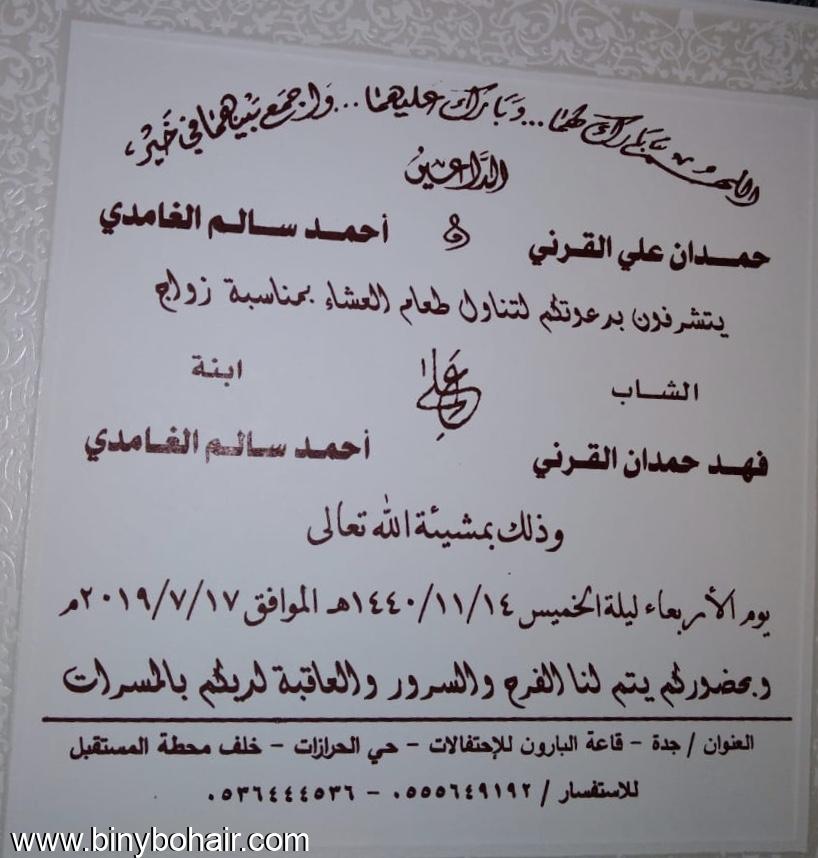 اللهم بارك لهما... وبارك عليهما... واجمع بينهما في خير،
الداعين
حمدان علي القرني و أحمد سالم الغامدي
يتشرفون بدعوتكم لتناول طعام العشاء بمناسبة زواج
الشاب على ابنة
فهد حمدان القرني أحمد سالم الغامدي
وذلك بمشيئة الله تعالى
يوم الأربعاء ليلة الخميس ١٤٤٠/١١/١٤هـ الموافق ٢٠١٩/٧/١٧م
وبحضوركم يتم لنا الفرح والسرور والعاقبة لديكم بالمسرات
العنوان / جدة - قاعة البارون للإحتفالات - حي الحرازات - خلف محطة المستقبل
للاستفسار / ٠٥٥٥٦٤٩١٩٢ - ٠٥٣٦٤٤٤٥٣٦
www.binybohair.com